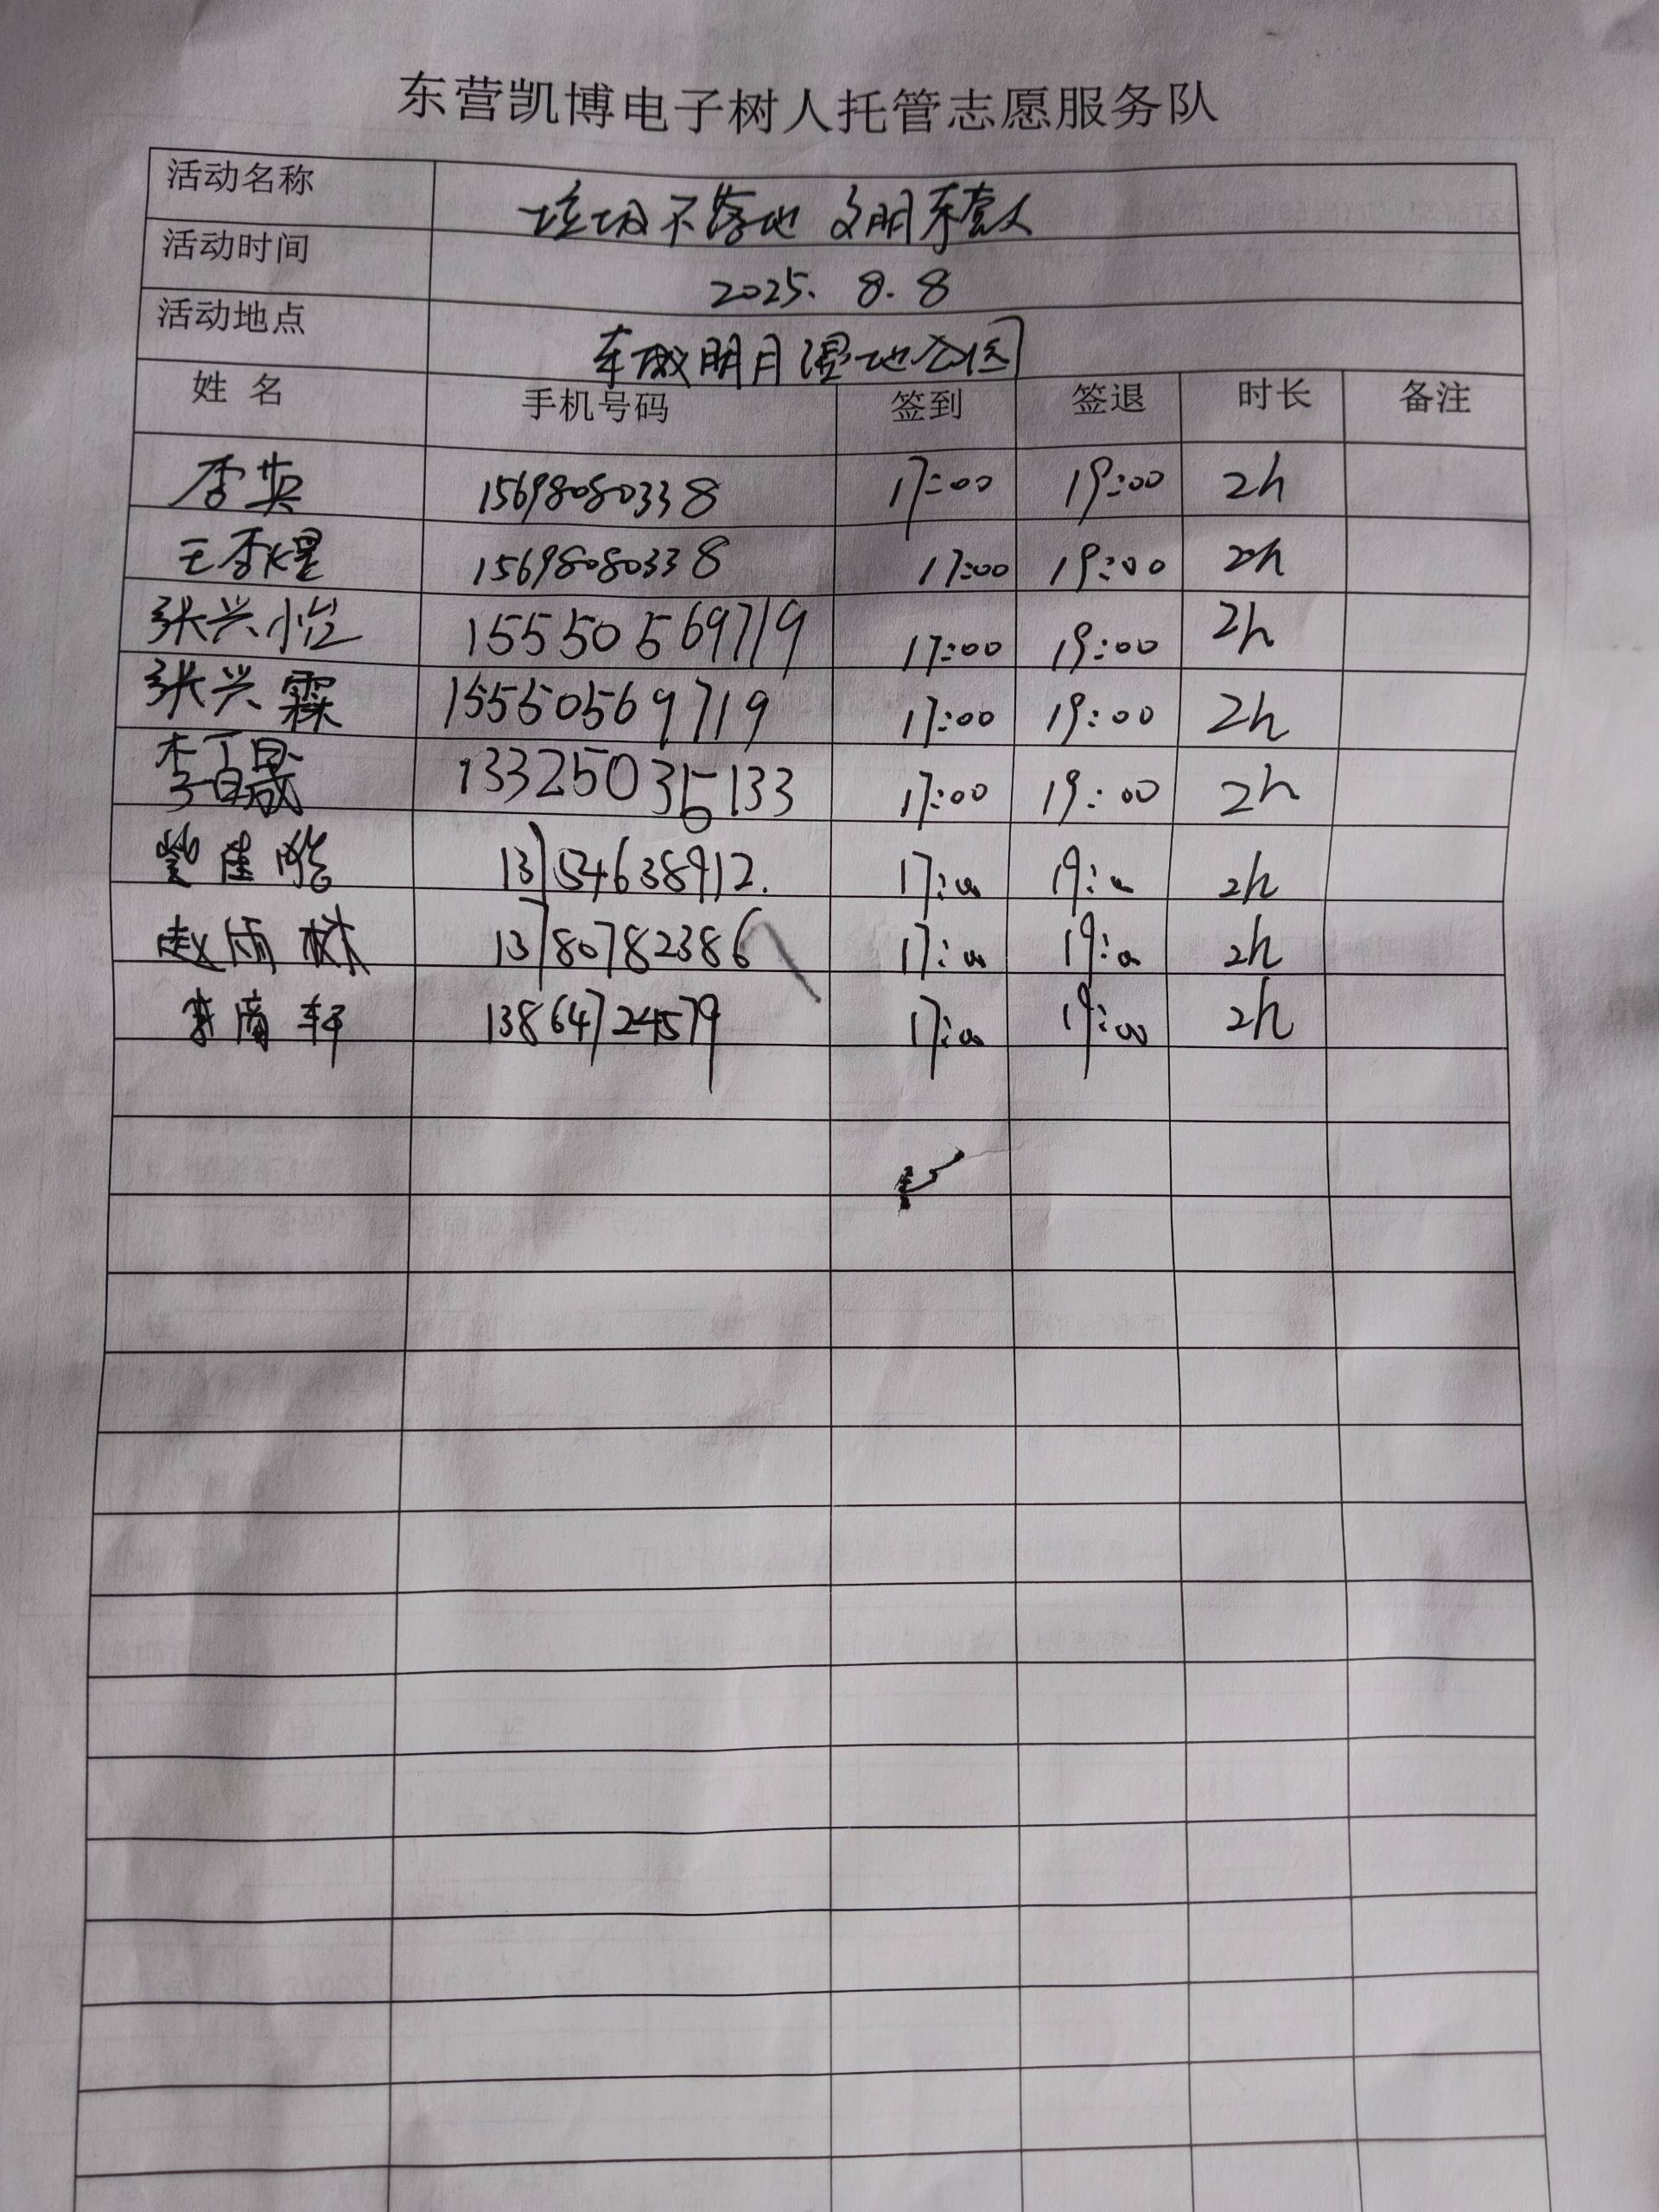 东营凯博电子树人托管志愿服务队
活动名称 垃圾不落地 文明东营人
活动时间 2025. 8. 8
活动地点 东城明月湿地公园
姓 名 手机号码 签到 签退 时长 备注
李英 15698080338 17:00 19:00 2h
王李煜 15698080338 17:00 19:00 2h
张兴怡 15550569719 17:00 19:00 2h
张兴霖 15550569719 17:00 19:00 2h
李 133250 133 17:00 19:00 2h
佳皓 13154638912. 17:00 19:00 2h
赵雨树 13780782386 17:00 19:00 2h
轩 13864724579 17:00 19:00 2h